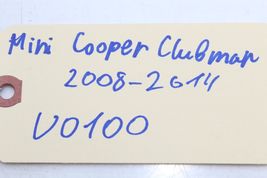 Mini Cooper Clubman
2008-2014
V0100